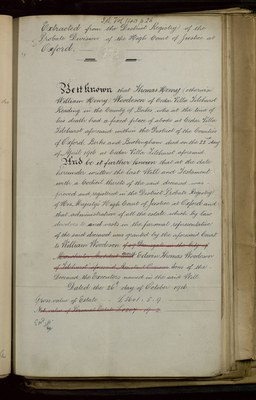 Extracted from the District Registry of the
Probate Division of the High Court of Justice at
Oxford.
Be it known that Thomas Henry otherwise
William Henry Woodeson of Cedar Villa Tilehurst
Reading in the County of Berks who at the time of
his death had a fixed place of abode at Cedar Villa
Tilehurst aforesaid within the District of the Counties
of Oxford Berks and Buckingham died on the 23 day
of April 1916 at Cedar Villa Tilehurst aforesaid
And be it further known that at the date
hereunder written the last Will and Testament
with a Codicil thereto of the said deceased was
proved and registered in the District Probate Registry
of His Majesty's High Court of Justice at Oxford and
that administration of all the estate which by law
devolves to and vests in the personal representative
of the said deceased was granted by the aforesaid Court
to William Woodeson
Edwin Thomas Woodeson
of Tilehurst aforesaid sons of the
Deceased the Executors named in the said Will
Dated the 26th day of October 1916
Gross value of Estate £
Net value of Personal Estate